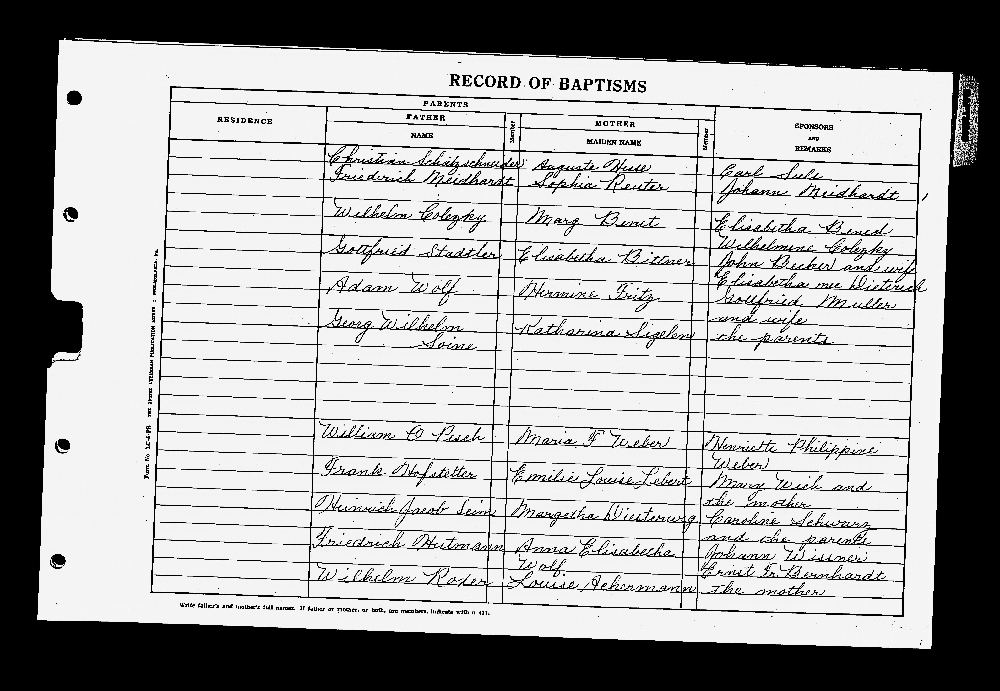 RECORD OF BAPTISMS
PARENTS
RESIDENCE FATHER MOTHER SPONSORS
AND
REMARKS
NAME Member MAIDEN NAME Member
Christian Schatzschneider Auguste Carl
Friederich Meidhardt Sophia Reuter Johann Meidhardt
Wilhelm Colezky Marg Benet Elisabetha Bened
Wilhelmine Colezky
Gottfried Stadtler Elisabetha Bittner John Becker and wife
Elisabetha nee Dieterich
Adam Wolf Hermine Fritz Gottfried Muller
and wife
Georg Wilhelm Katharina Sigelen the parents
Soine
William O Pesch Maria F Weber Henriette Philippine
Weber
Frank Hofstetter Emilie Louise Lebert Mary Wich and
the mother
Heinrich Jacob Seim Margetha Diesterweg Caroline Schwarz
and the parents
Friedrich Hutmann Anna Elisabetha Johann Wissner
Wolf Ernst Fr. Bernhardt
Wilhelm Roder Louise Ackermann the mother
Write father's and mother's full names. If father or mother, or both, are members, indicate with a